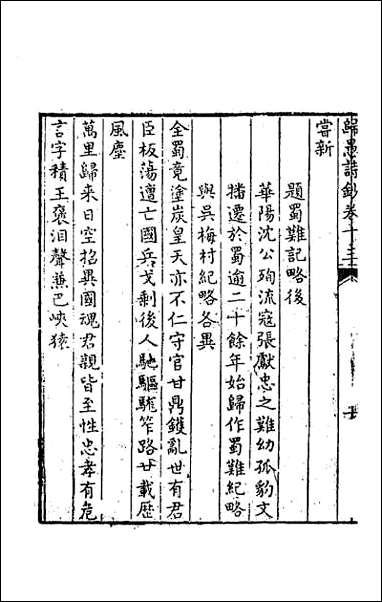 歸愚詩鈔卷十三
嘗新
題蜀難記略後
華陽沈公殉流寇張獻忠之難幼孤豹文
播遷於蜀逾二十餘年始歸作蜀難紀略
與吳梅村紀略各異
全蜀竟塗炭皇天亦不仁守官甘鼎鑊亂世有君
臣板蕩遭亡國兵戈剩後人馳驅駹笮路廿載歷
風塵
萬里歸来日空招異國魂君親皆至性忠孝有危
言字積王裒泪聲兼巴峽猿